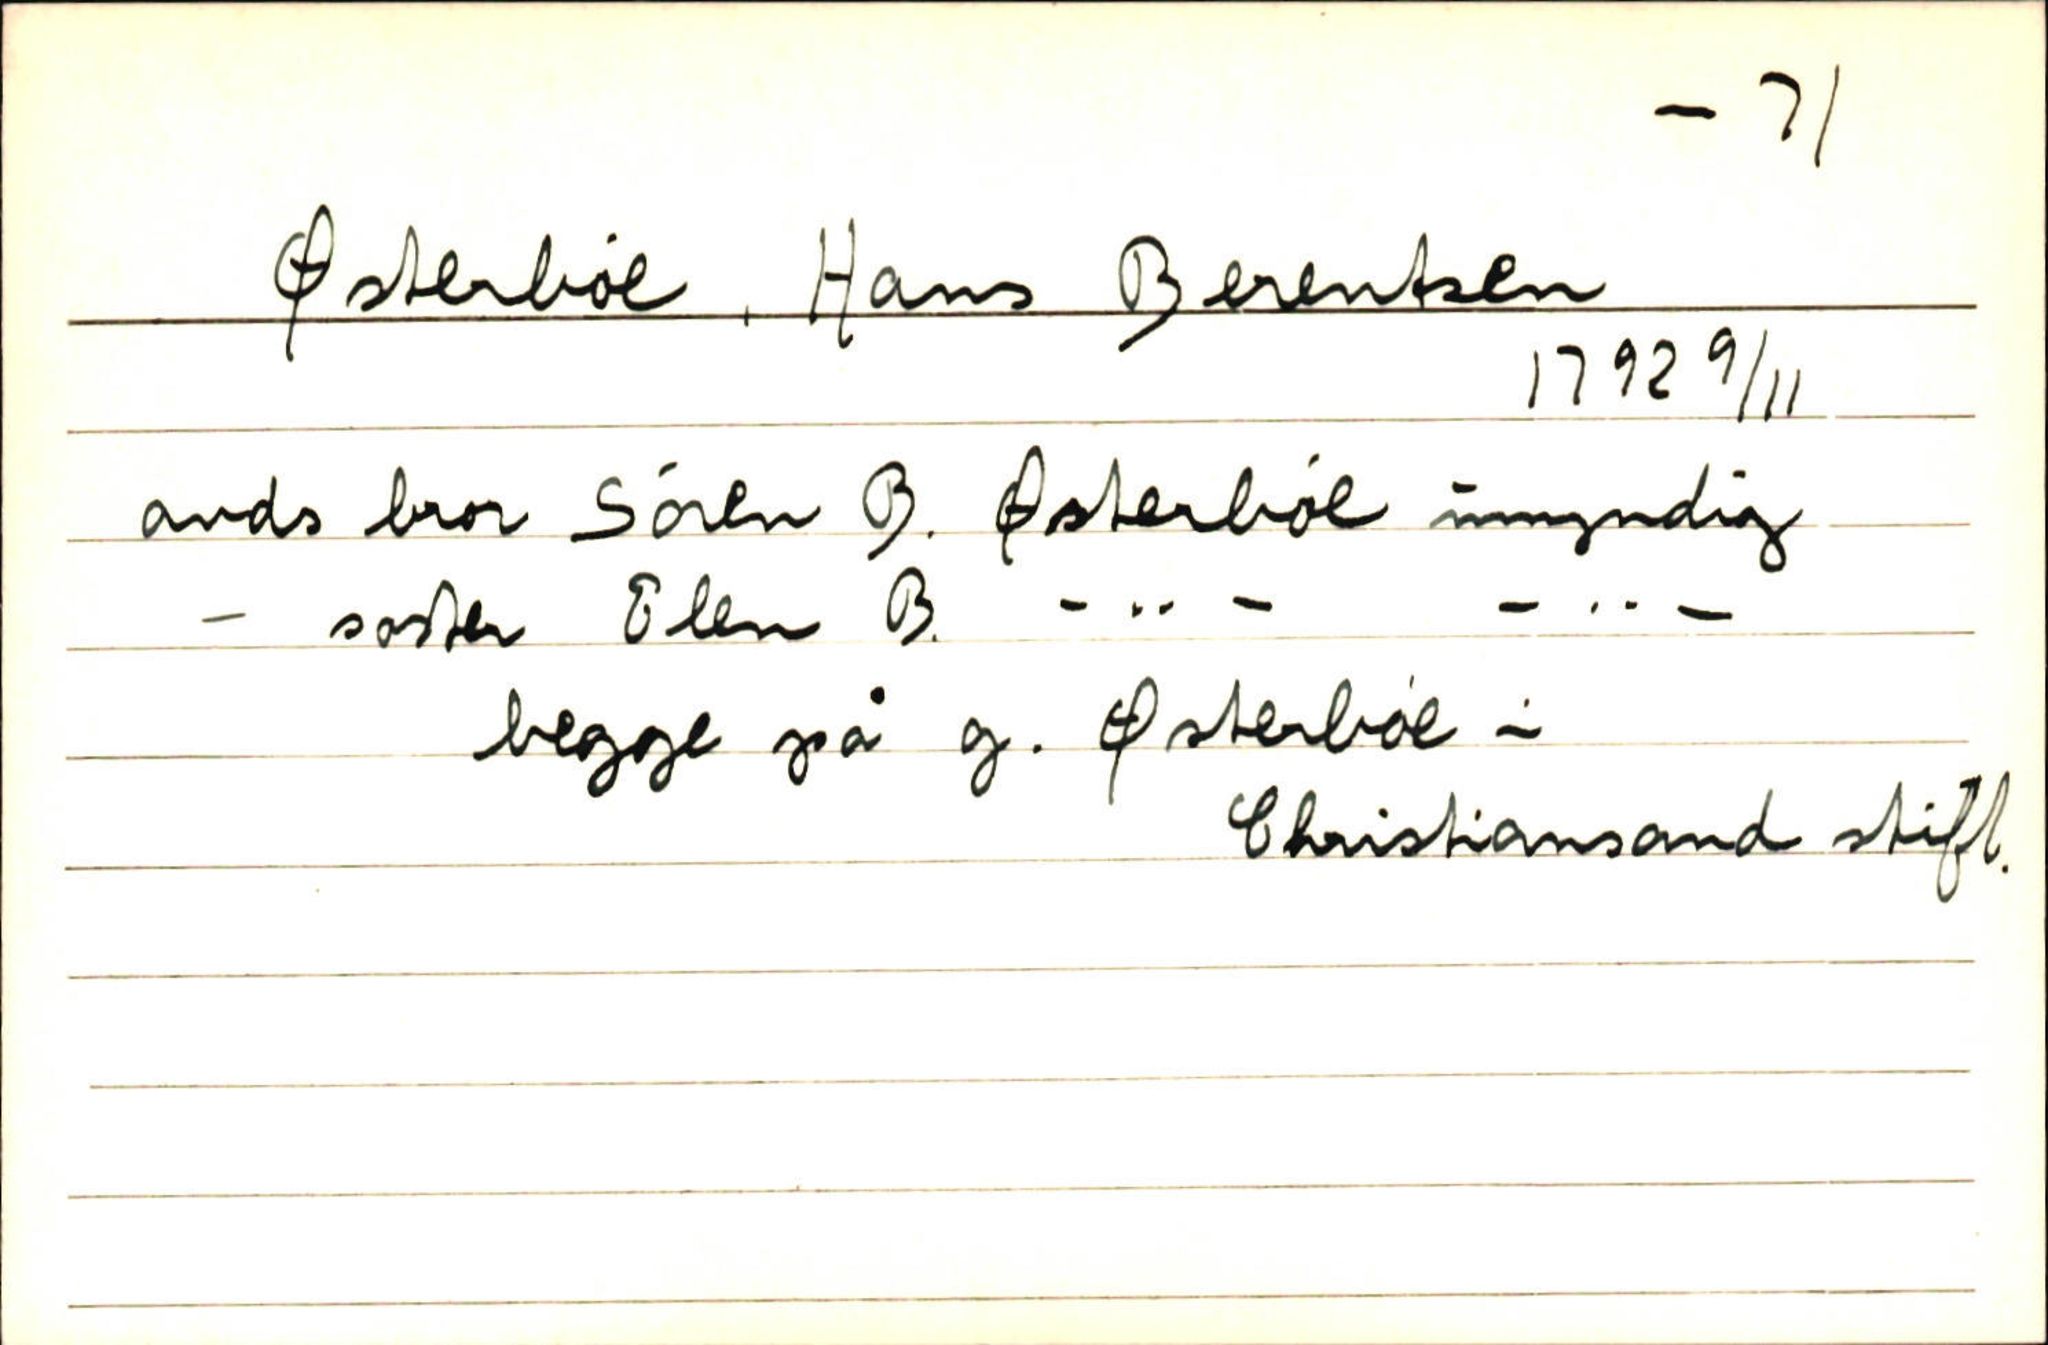 - 71
Østerbøe, Hans Berentsen
1792 9/11
avds bror Søren B. Østerbøe umyndig
- søster Elen B. - ·· - - ·· -
begge på g. Østerbøe i
Christiansand stift.